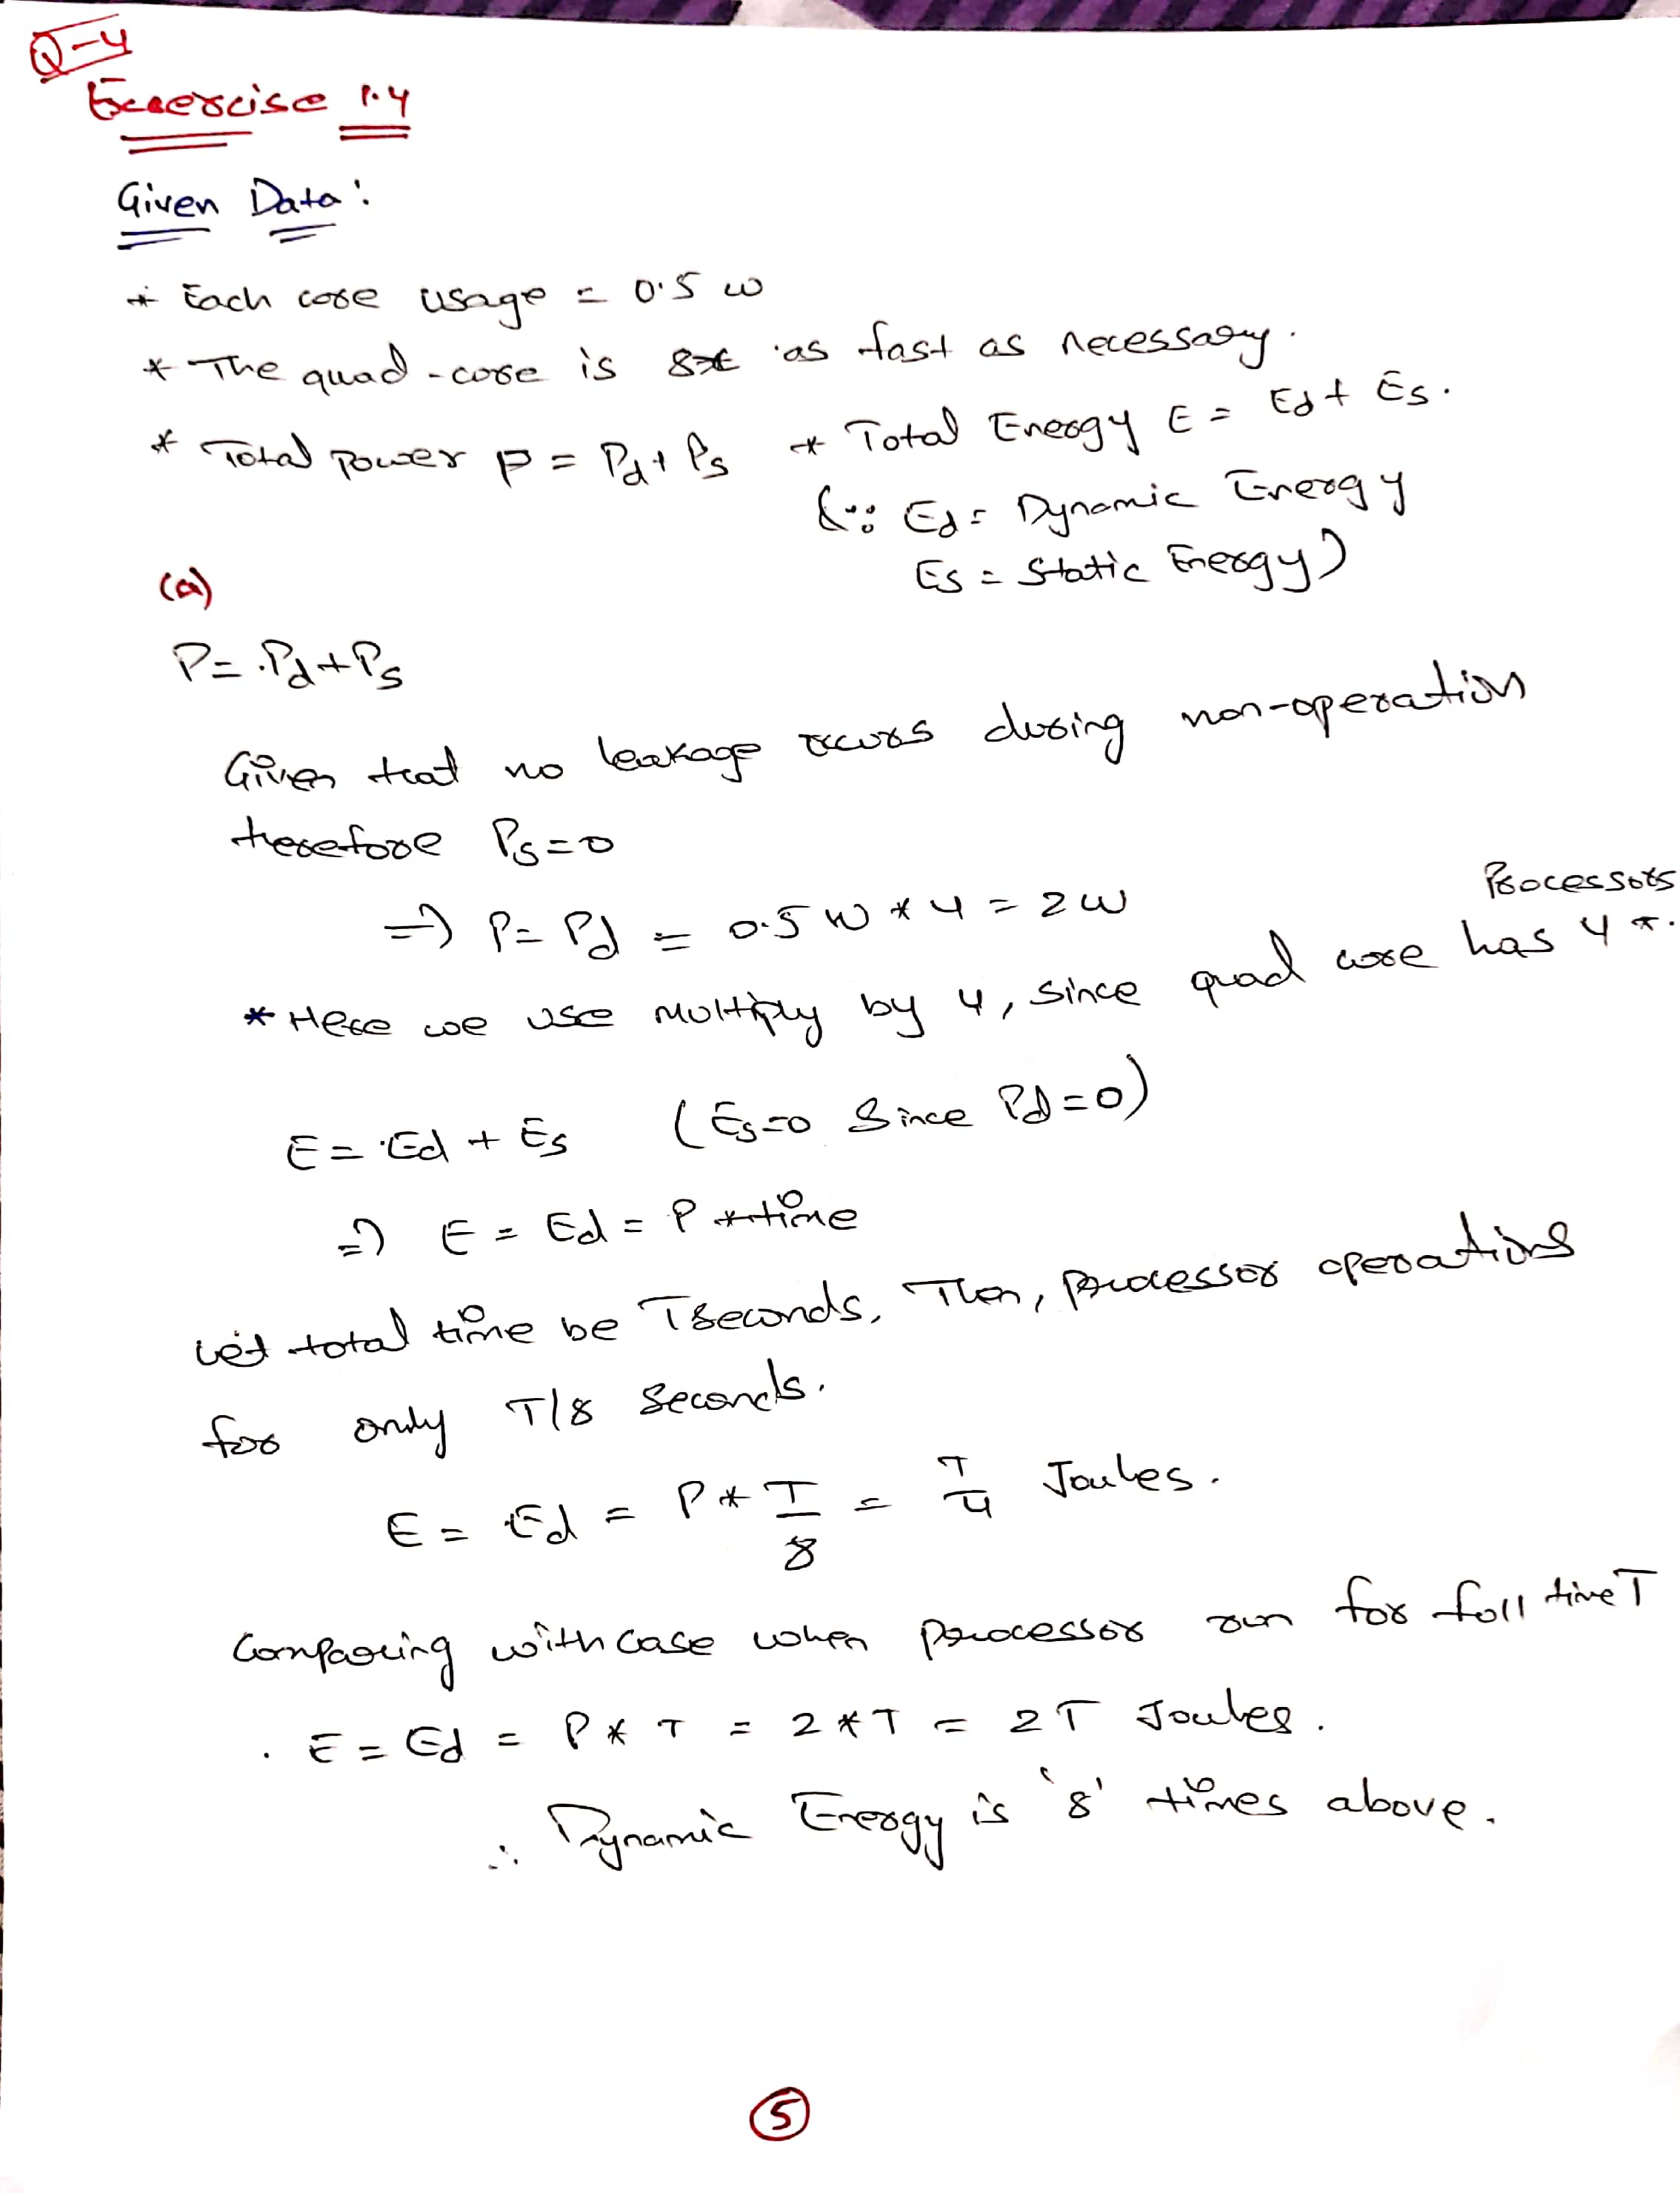 Q-4
Excercise 1.4
Given Data :
* Each core usage = 0.5 w
* The quad-core is 8x as fast as necessary.
* Total Power P = Pd + Ps * Total Energy E = Ed + Es.
(∵ Ed = Dynamic Energy
Es = Static Energy)
(a)
P = Pd + Ps
Given that no leakage occurs during non-operation
therefore Ps = 0
=> P = Pd = 0.5 W * 4 = 2 W
Processors
* Here we use multiply by 4, Since quad core has 4 ^.
E = Ed + Es (Es = 0 Since Pd = 0)
=> E = Ed = P * time
Let total time be T seconds. Then, processor operations
for only T/8 Seconds.
E = Ed = P * T/8 = T/4 Joules.
Comparing with case when processor run for full time T
. E = Ed = P * T = 2 * T = 2T Joules.
∴ Dynamic Energy is '8' times above.
5